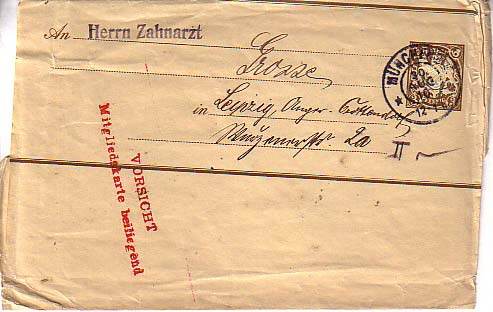 An Herrn Zahnarzt
Grosse
in Leipzig, Anger-Crottendorf
Wurzenerstr. 2a
II
MÜNCHEN
VORSICHT
Mitgliedskarte beiliegend